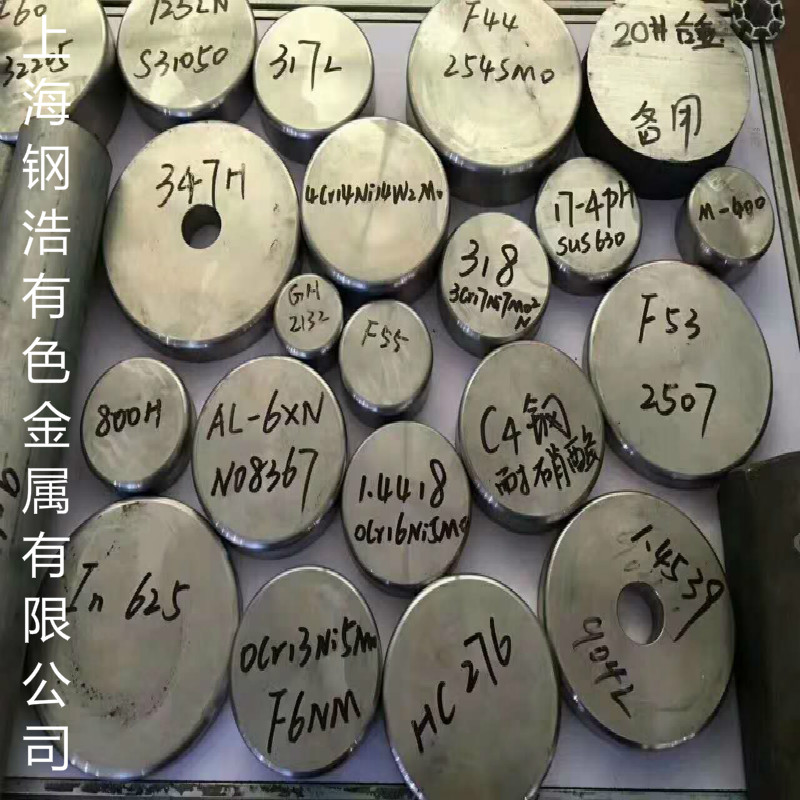 上海钢浩有色金属有限公司
L60
32205
725LN
S31050
317L
F44
254SMo
20#合金
备用
347H
4Cr14Ni14W2Mo
17-4PH
SUS630
M-400
318
3Cr17Ni7Mo2
N
GH
2132
F55
F53
2507
800H
AL-6XN
N08367
1.4418
0Cr16Ni5Mo
C4钢
耐硝酸
In 625
0Cr13Ni5Mo
F6NM
HC 276
1.4539
904L